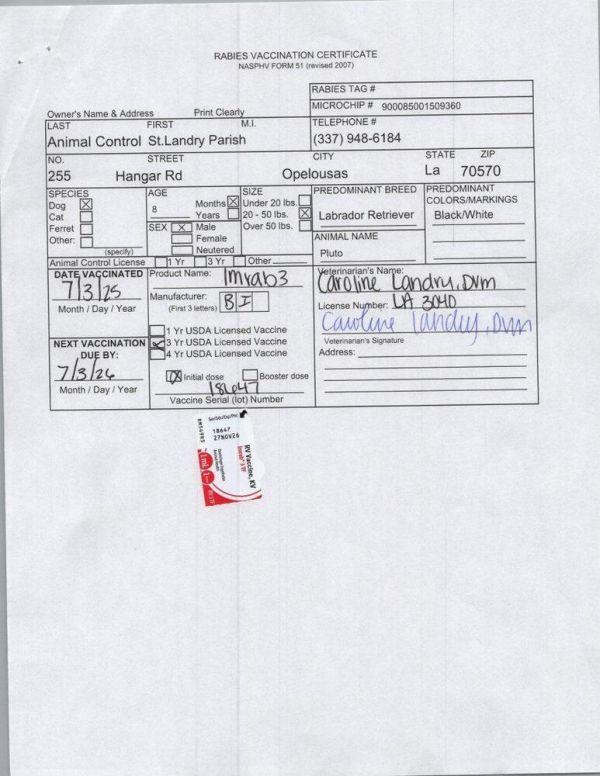 RABIES VACCINATION CERTIFICATE
NASPHV FORM 51 (revised 2007)
RABIES TAG #
MICROCHIP # 900085001509360
Owner's Name & Address Print Clearly
LAST FIRST M.I. TELEPHONE #
Animal Control St.Landry Parish (337) 948-6184
NO. STREET CITY STATE ZIP
255 Hangar Rd Opelousas La 70570
SPECIES AGE SIZE PREDOMINANT BREED PREDOMINANT
COLORS/MARKINGS
Dog Months Under 20 lbs.
Cat 8 Years 20 - 50 lbs. Labrador Retriever Black/White
Ferret SEX X Male Over 50 lbs.
Other: Female ANIMAL NAME
(specify) Neutered Pluto
Animal Control License 1 Yr 3 Yr Other
DATE VACCINATED Product Name: Imrab3 Veterinarian's Name:
7/3/25 Caroline Landry, DVM
Month / Day / Year Manufacturer: BI License Number: LA 3040
(First 3 letters) Caroline Landry, DVM
1 Yr USDA Licensed Vaccine Veterinarian's Signature
NEXT VACCINATION 3 Yr USDA Licensed Vaccine
DUE BY: 4 Yr USDA Licensed Vaccine Address:
7/3/26 Initial dose Booster dose
Month / Day / Year 18647
Vaccine Serial (lot) Number
Ser/Sér/Exp/Pér
18647
27NOV26
RV Vaccine, KV
Imrab® 3 TF
1mL